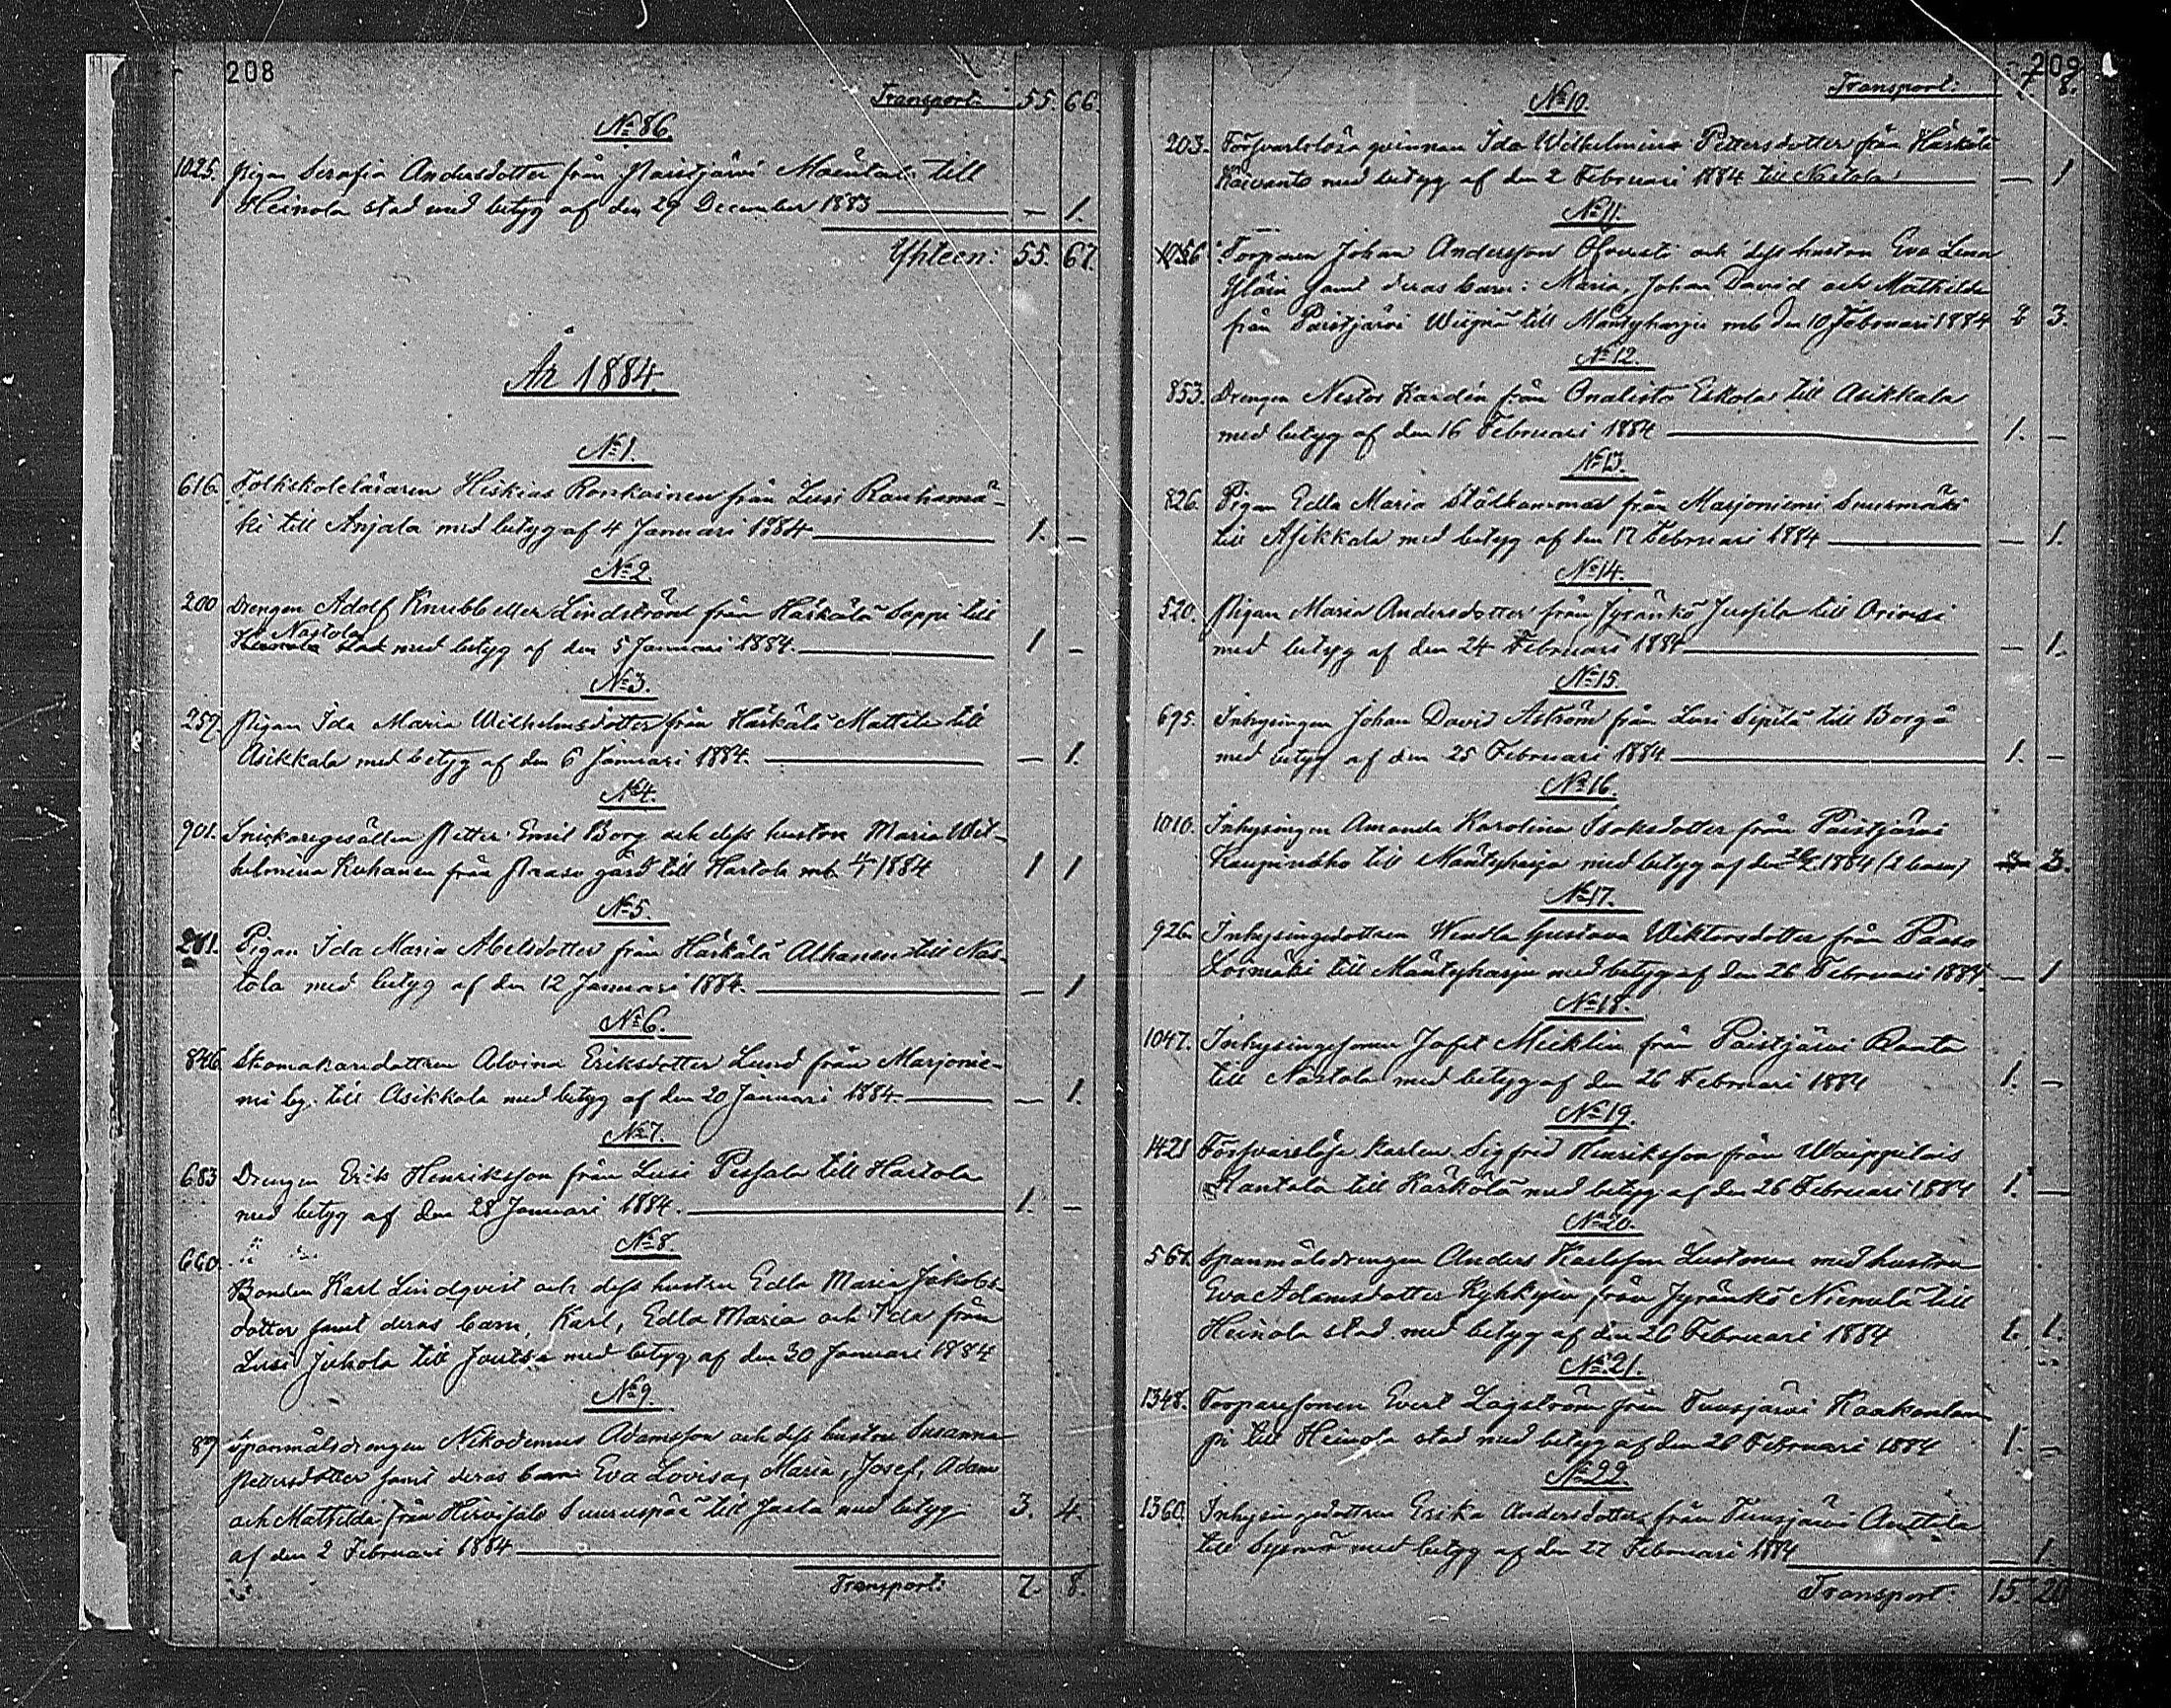 208
Transport: 55. 66.
No 86.
1025. Pigan Serafia Andersdotter från Paistjärvi Mäntari till
Heinola stad med betyg af den 29 December 1883 — 1.
Yhteen: 55. 67.
År 1884.
No 1.
616. Folkskoleläraren Hiskias Ronkainen från Lusi Rauhamä-
ki till Anjala med betyg af 4 Januari 1884 1. —
No 2.
200 Drengen Adolf Knubb eller Lindström från Härkälä Seppi till
Nastola
stad med betyg af den 5 Januari 1884. 1 —
No 3.
257. Pigan Ida Maria Wilhelmsdotter från Härkälä Mattila till
Asikkala med betyg af den 6 Januari 1884. — 1.
No 4.
901. Snickaregesällen Petter Emil Borg och dess hustru Maria Wil-
helmina Kuhanen från Paaso gård till Hartola mb 1884 1 1
No 5.
Pigan Ida Maria Abelsdotter från Härkälä Alhanen till Nas-
tola med betyg af den 12 Januari 1884. — 1
No 6.
846 Skomakaredottren Alvina Eriksdotter Lund från Marjonie-
mi by till Asikkala med betyg af den 20 Januari 1884. — 1.
No 7.
683 Drengen Erik Henriksson från Lusi Pessala till Hartola
med betyg af den 28 Januari 1884. 1. —
No 8
660.
Bonden Karl Lindqvist och dess hustru Edla Maria Jakobs-
dotter samt deras barn, Karl, Edla Maria och Ida från
Lusi Jukola till Joutsa med betyg af den 30 Januari 1884
No 9.
87 Spanmålsdrengen Nikodemus Adamsson och dess hustru Susanna
Pettersdotter samt deras barn Eva Lovisa, Maria, Josef, Adam
och Mathilda från Hirvisalo Suurespää till Jaala med betyg 3. 4.
af den 2 Februari 1884
Transport: 7. 8.
209
Transport: 7. 8.
No 10.
203. Försvarslösa qvinnan Ida Wilhelmina Pettersdotter från Härkälä
Koivanto med betyg af den 2 Februari 1884 till Nastola — 1
No 11.
1056 Torparen Johan Andersson och dess hustru Eva Lena
samt deras barn: Maria, Johan David och Mathilda
från Paistjärvi till Mäntyharju mb den 10 Februari 1884 2 3.
No 12.
853. Drengen Nestor Kardin från Onalisto Eskola till Asikkala
med betyg af den 16 Februari 1884 1. —
No 13.
826. Pigan Edla Maria Stålhammar från Marjoniemi Suurmäki
till Asikkala med betyg af den 17 Februari 1884 — 1.
No 14.
520. Pigan Maria Andersdotter från Jyränkö Jussila till Orivesi
med betyg af den 24 Februari 1884 — 1.
No 15.
695. Inhysingen Johan David Aström från Lusi Sipilä till Borgå
med betyg af den 25 Februari 1884 1. —
No 16.
1010. Inhysingen Amanda Karolina Isaksdotter från Paistjärvi
Kaupinaho till Mäntyharju med betyg af den 1884 (2 barn) 3.
No 17.
926. Inhysingedottren Wendla Gustava Wiktorsdotter från Paaso
till Mäntyharju med betyg af den 26 Februari 1884 — 1
No 18.
1047. Inhysingesonen Jafet Meiklin från Paistjärvi Ranta
till Nastola med betyg af den 26 Februari 1884 1. —
No 19.
1421 Försvarslöse karlen Sigfrid Henriksson från
Rantala till Kärkölä med betyg af den 26 Februari 1884 1. —
No 20.
567. Spanmålsdrengen Anders Karlsson Lustonen med hustru
Eva Adamsdotter från Jyränkö Niemelä till
Heinola stad med betyg af den 26 Februari 1884 1. 1.
No 21.
1348. Torparesonen Evert Lagström från Tuusjärvi
till Heinola stad med betyg af den 26 Februari 1884 1. —
No 22.
1360. Inhysingedottren Erika Andersdotter från Tuusjärvi Anttila
till Sysmä med betyg af den 27 Februari 1884 — 1
Transport: 15. 20